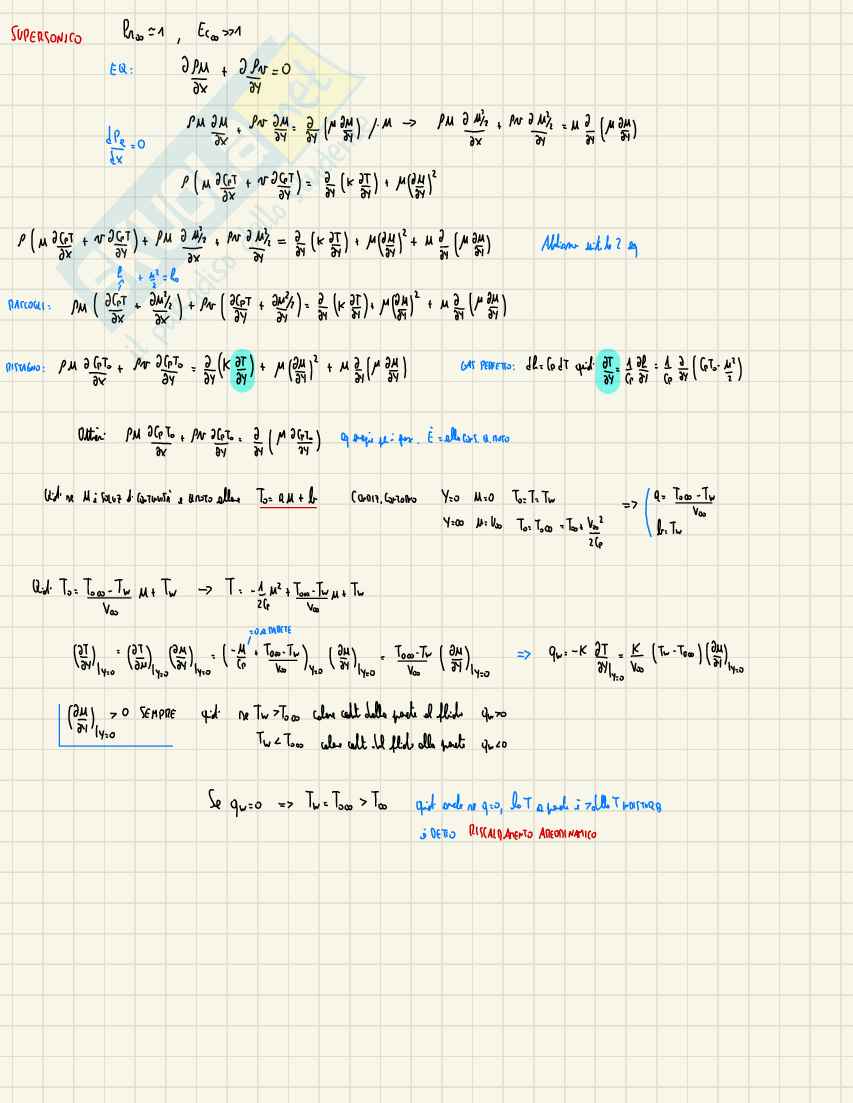 SUPERSONICO Pr∞ ≃ 1 , Ec∞ >> 1
EQ: ∂ρu/∂x + ∂ρv/∂y = 0
dPe/dx = 0 ρu ∂u/∂x + ρv ∂u/∂y = ∂/∂y (μ ∂u/∂y) /·u → ρu ∂u²/2/∂x + ρv ∂u²/2/∂y = u ∂/∂y (μ ∂u/∂y)
ρ(u ∂CpT/∂x + v ∂CpT/∂y) = ∂/∂y (K ∂T/∂y) + μ(∂u/∂y)²
ρ(u ∂CpT/∂x + v ∂CpT/∂y) + ρu ∂u²/2/∂x + ρv ∂u²/2/∂y = ∂/∂y (K ∂T/∂y) + μ(∂u/∂y)² + u ∂/∂y (μ ∂u/∂y) Abbiamo le 2 eq
h + u²/2 = h₀
RACCOGLI: ρu (∂CpT/∂x + ∂u²/2/∂x) + ρv (∂CpT/∂y + ∂u²/2/∂y) = ∂/∂y (K ∂T/∂y) + μ(∂u/∂y)² + u ∂/∂y (μ ∂u/∂y)
RISTAGNO: ρu ∂CpT₀/∂x + ρv ∂CpT₀/∂y = ∂/∂y (K ∂T/∂y) + μ(∂u/∂y)² + u ∂/∂y (μ ∂u/∂y) GAS PERFETTO: dh = Cp dT quindi ∂T/∂y = 1/Cp ∂h/∂y = 1/Cp ∂/∂y (CpT₀ - u²/2)
Ottieni ρu ∂CpT₀/∂x + ρv ∂CpT₀/∂y = ∂/∂y (μ ∂CpT₀/∂y) eq energia . È = alla Q.MOTO
Quindi se u è soluz di continuità e q.moto allora T₀ = au + b CONDIZ. CONTORNO y=0 u=0 T₀=T=Tw => a = T₀∞ - Tw/V∞
y=∞ u=V∞ T₀=T₀∞=T∞+V∞²/2Cp b=Tw
Quindi T₀ = T₀∞ - Tw/V∞ u + Tw → T = -1/2Cp u² + T₀∞ - Tw/V∞ u + Tw
=0 a PARETE
(∂T/∂y)|y=0 = (∂T/∂u)|y=0 (∂u/∂y)|y=0 = (-u/Cp + T₀∞ - Tw/V∞)y=0 (∂u/∂y)|y=0 = T₀∞ - Tw/V∞ (∂u/∂y)|y=0 => qw = -K ∂T/∂y|y=0 = K/V∞ (Tw - T₀∞)(∂u/∂y)|y=0
(∂u/∂y)|y=0 > 0 SEMPRE quindi se Tw > T₀∞ calore cedt dalla parete al fluido qw>0
Tw < T₀∞ calore cedt dal fluido alla parete qw<0
Se qw=0 => Tw = T₀∞ > T∞ quindi anche se q=0, la T a parete è > della T INDISTURB
è DETTO RISCALDAMENTO AERODINAMICO
SKUOLA.net
il paradiso dello studente